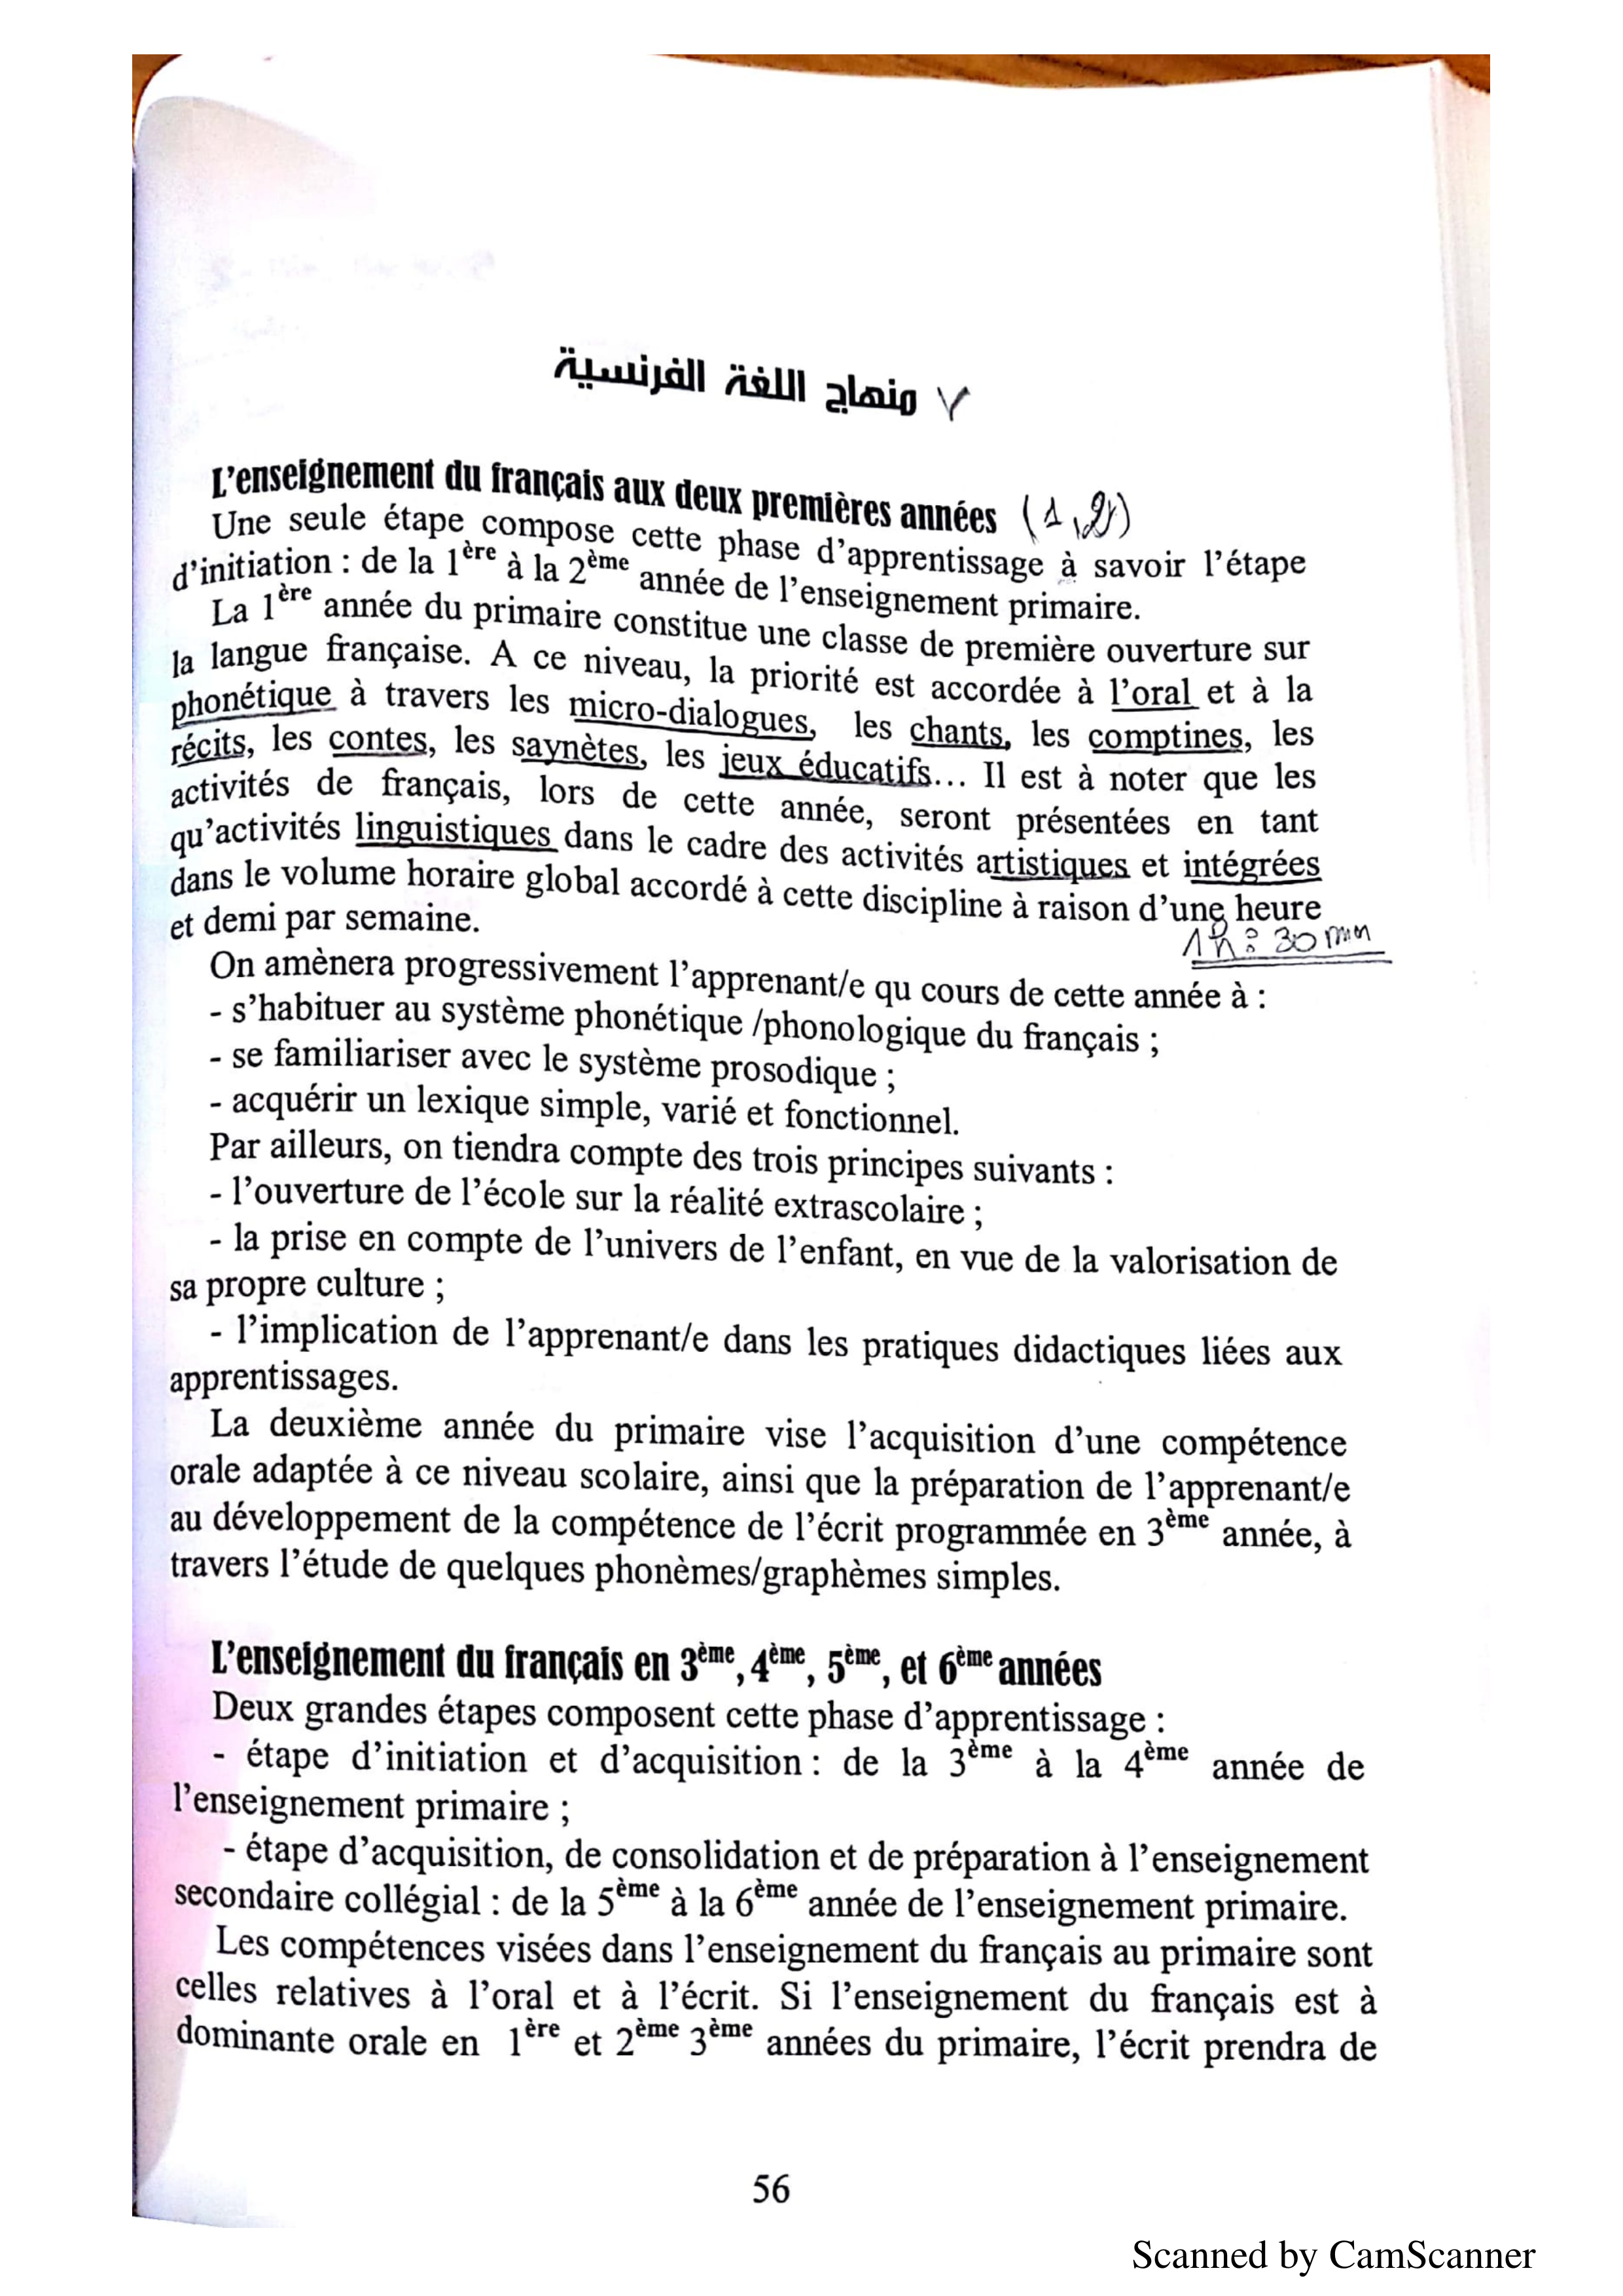 ٧ منهاج اللغة الفرنسية
L'enseignement du français aux deux premières années (1,2)
Une seule étape compose cette phase d'apprentissage à savoir l'étape
d'initiation : de la 1ère à la 2ème année de l'enseignement primaire.
La 1ère année du primaire constitue une classe de première ouverture sur
la langue française. A ce niveau, la priorité est accordée à l'oral et à la
phonétique à travers les micro-dialogues, les chants, les comptines, les
récits, les contes, les saynètes, les jeux éducatifs... Il est à noter que les
activités de français, lors de cette année, seront présentées en tant
qu'activités linguistiques dans le cadre des activités artistiques et intégrées
dans le volume horaire global accordé à cette discipline à raison d'une heure
et demi par semaine.
1h : 30 mn
On amènera progressivement l'apprenant/e qu cours de cette année à :
- s'habituer au système phonétique /phonologique du français ;
- se familiariser avec le système prosodique ;
- acquérir un lexique simple, varié et fonctionnel.
Par ailleurs, on tiendra compte des trois principes suivants :
- l'ouverture de l'école sur la réalité extrascolaire ;
- la prise en compte de l'univers de l'enfant, en vue de la valorisation de
sa propre culture ;
- l'implication de l'apprenant/e dans les pratiques didactiques liées aux
apprentissages.
La deuxième année du primaire vise l'acquisition d'une compétence
orale adaptée à ce niveau scolaire, ainsi que la préparation de l'apprenant/e
au développement de la compétence de l'écrit programmée en 3ème année, à
travers l'étude de quelques phonèmes/graphèmes simples.
L'enseignement du français en 3ème, 4ème, 5ème, et 6ème années
Deux grandes étapes composent cette phase d'apprentissage :
- étape d'initiation et d'acquisition : de la 3ème à la 4ème année de
l'enseignement primaire ;
- étape d'acquisition, de consolidation et de préparation à l'enseignement
secondaire collégial : de la 5ème à la 6ème année de l'enseignement primaire.
Les compétences visées dans l'enseignement du français au primaire sont
celles relatives à l'oral et à l'écrit. Si l'enseignement du français est à
dominante orale en 1ère et 2ème 3ème années du primaire, l'écrit prendra de
56
Scanned by CamScanner